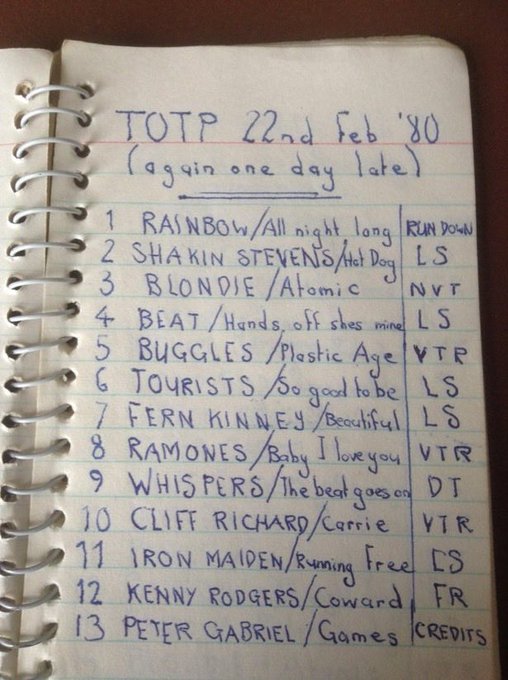 TOTP 22nd Feb '80
(again one day late)
1 RAINBOW/All night long RUN DOWN
2 SHAKIN STEVENS/Hot Dog LS
3 BLONDIE/Atomic NVT
4 BEAT/Hands off shes mine LS
5 BUGGLES/Plastic Age VTR
6 TOURISTS/So good to be LS
7 FERN KINNEY/Beautiful LS
8 RAMONES/Baby I love you VTR
9 WHISPERS/The beat goes on DT
10 CLIFF RICHARD/Carrie VTR
11 IRON MAIDEN/Running Free LS
12 KENNY RODGERS/Coward FR
13 PETER GABRIEL/Games CREDITS